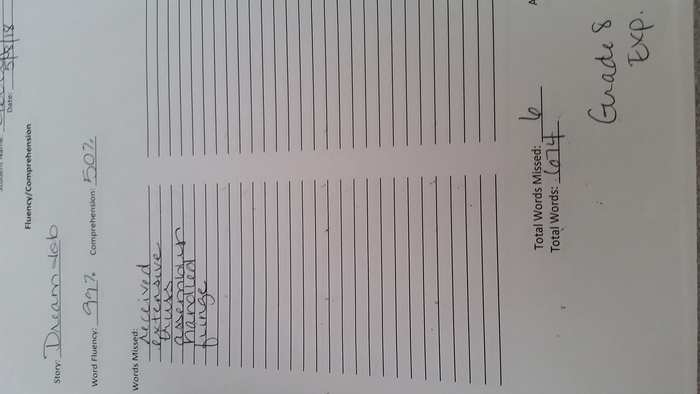 Date: 5/8/18
Fluency/Comprehension
Story: Dream Job
Word Fluency: 99% Comprehension: 50%
Words Missed:
received
extensive
thus
assembler
handled
fringe
Total Words Missed: 6
Total Words: 674
Grade 8
Exp.